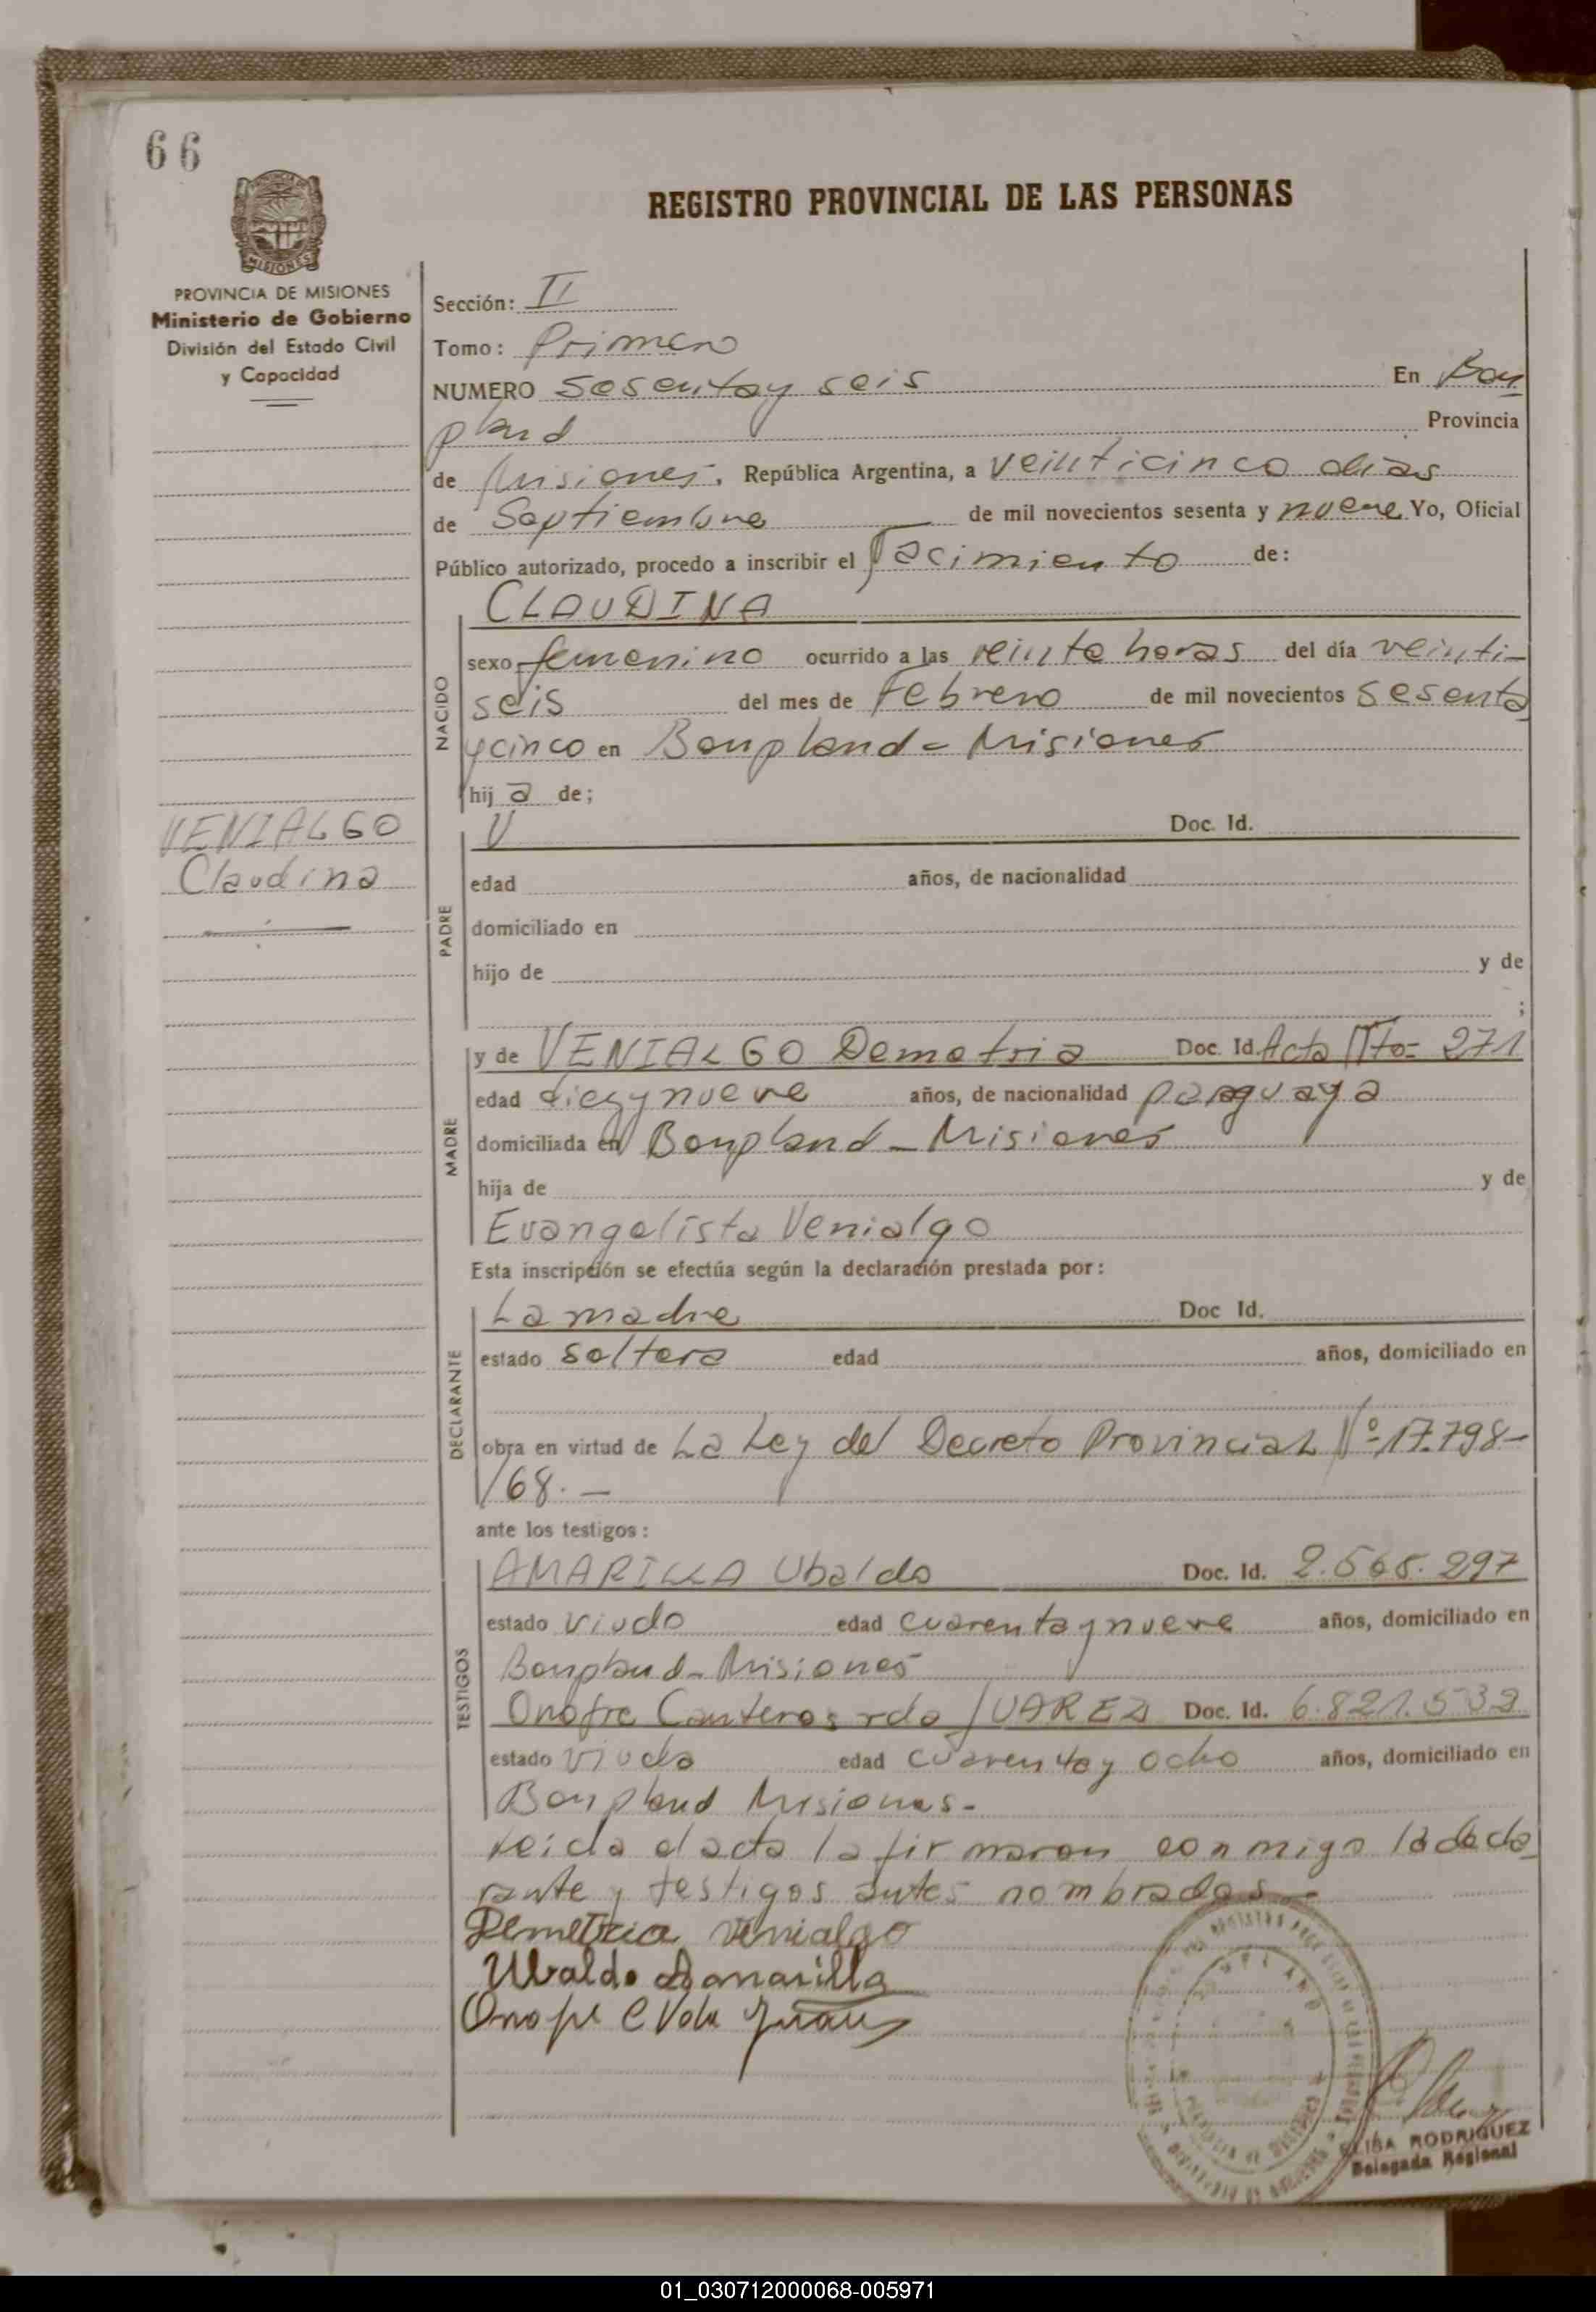 66
REGISTRO PROVINCIAL DE LAS PERSONAS
MISIONES
PROVINCIA DE MISIONES
Ministerio de Gobierno
División del Estado Civil
y Capacidad
Sección: II
Tomo: Primero
NUMERO sesenta y seis En Bon
pland Provincia
de Misiones, República Argentina, a veinticinco dias
de Septiembre de mil novecientos sesenta y nueve Yo, Oficial
Público autorizado, procedo a inscribir el Nacimiento de:
NACIDO
CLAUDINA
sexo femenino ocurrido a las veinte horas del día veinti-
seis del mes de Febrero de mil novecientos sesenta
y cinco en Bonpland = Misiones
hij a de;
VENIALGO
Claudina
PADRE
Doc. Id.
edad años, de nacionalidad
domiciliado en
hijo de y de
;
MADRE
y de VENIALGO Demetria Doc. Id. Acta Nto= 271
edad diez y nueve años, de nacionalidad paraguaya
domiciliada en Bonpland - Misiones
hija de y de
Evangelista Venialgo
Esta inscripción se efectúa según la declaración prestada por:
DECLARANTE
La madre Doc Id.
estado soltera edad años, domiciliado en
obra en virtud de La Ley del Decreto Provincial Nº 17.798-
/68. -
ante los testigos:
TESTIGOS
AMARILLA Ubaldo Doc. Id. 2.568.297
estado viudo edad cuarenta y nueve años, domiciliado en
Bonpland - Misiones
Onofre Canteros vda JUAREZ Doc. Id. 6.821.532
estado viuda edad cuarenta y ocho años, domiciliado en
Bonpland Misiones-
Leida el acta la firmaron conmigo la decla
rante y testigos antes nombrados-
Demetria Venialgo
Ubaldo Amarilla
Onofre C Vda Juarez
BONPLAND
ELISA RODRIGUEZ
Delegada Regional
01_030712000068-005971